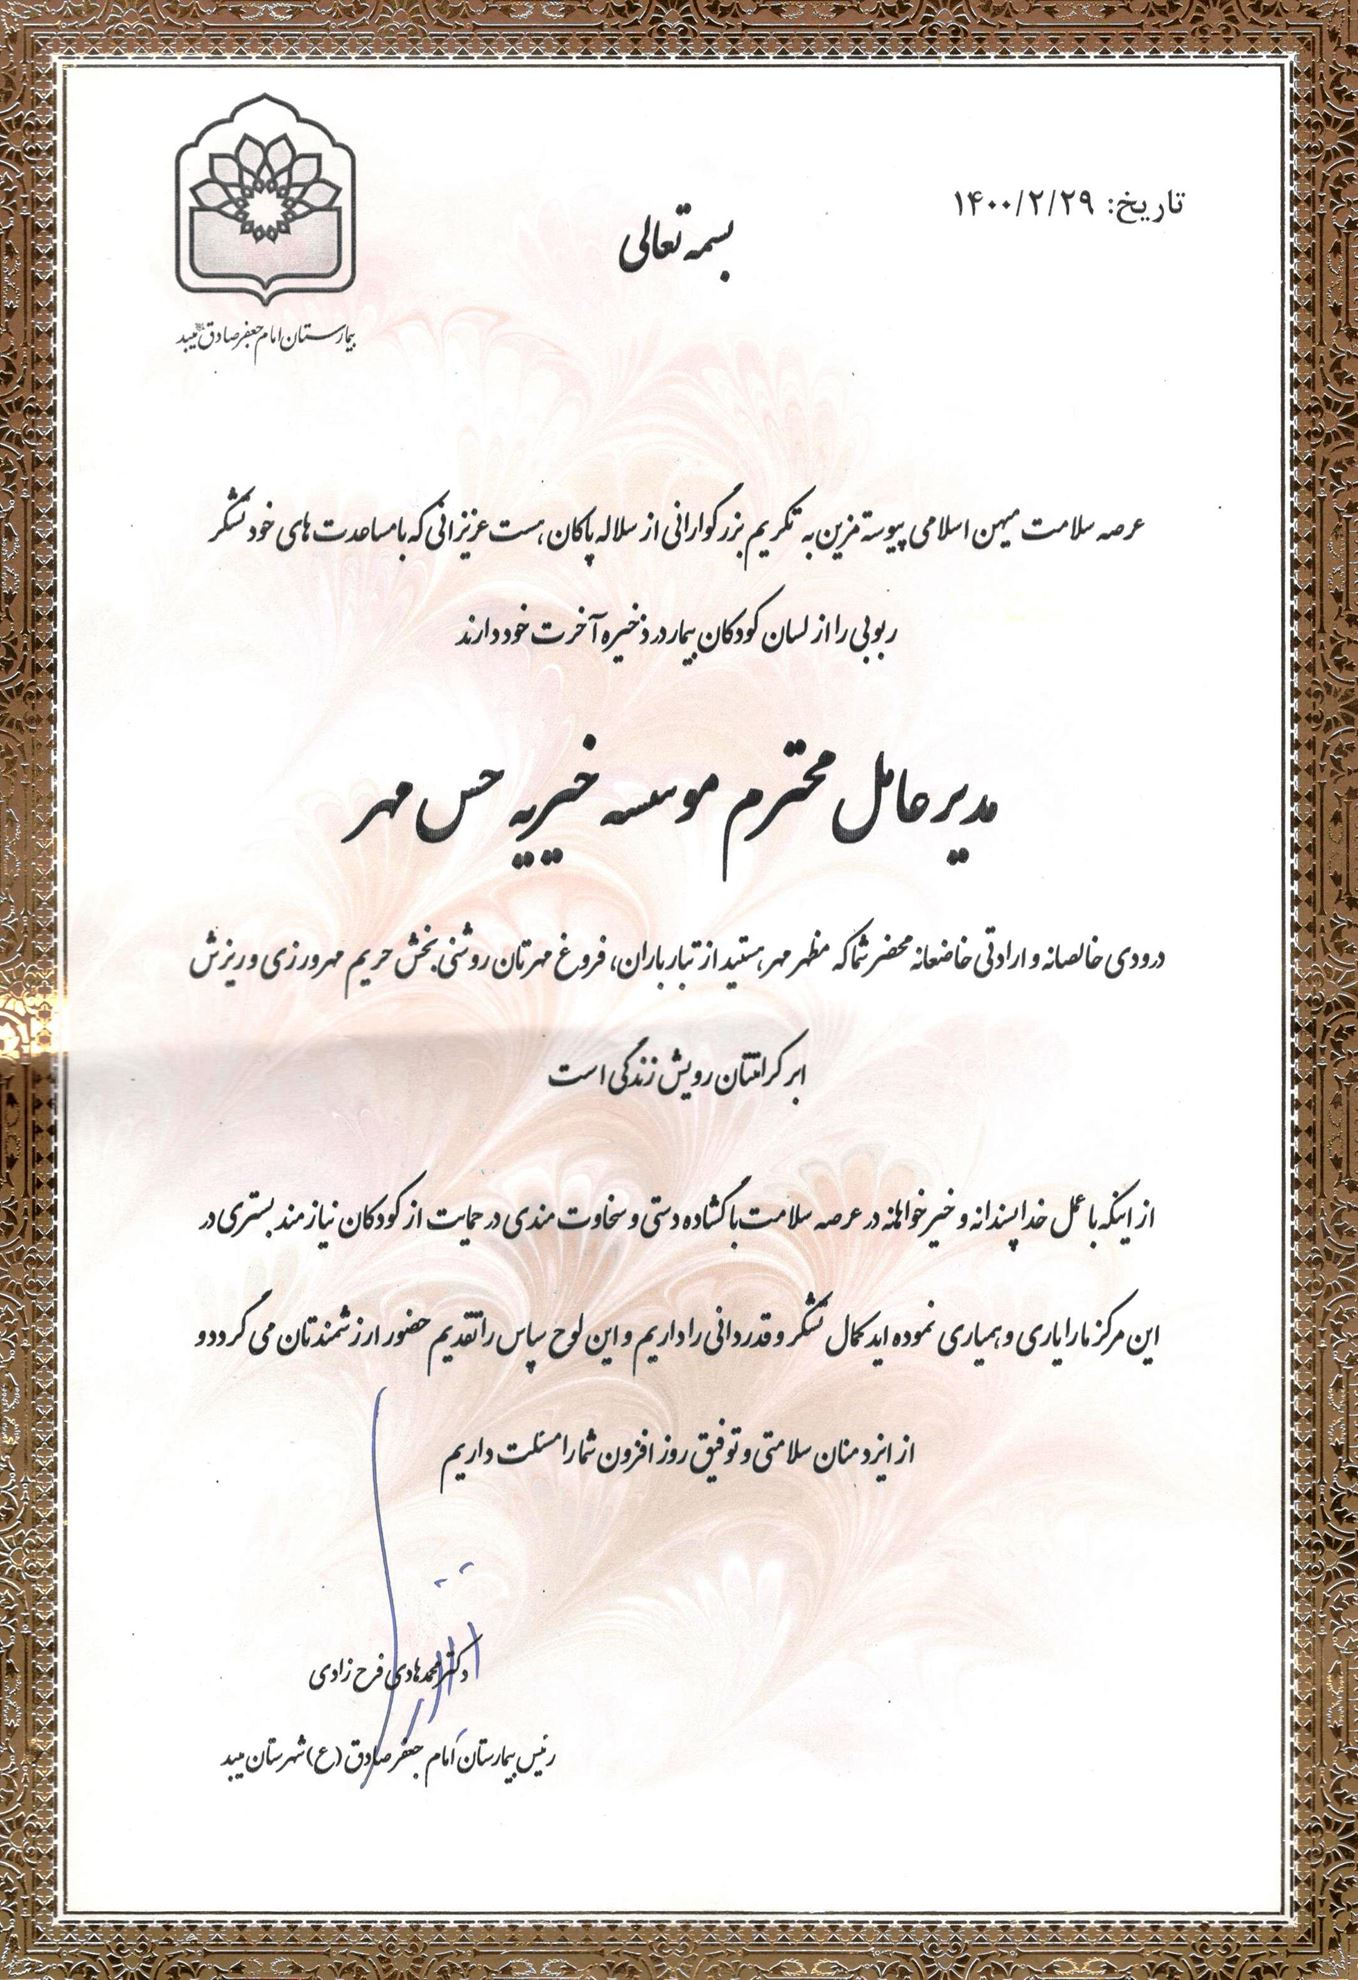 تاریخ: ۱۴۰۰/۲/۲۹
بسمه تعالی
بیمارستان امام جعفر صادق میبد
عرصه سلامت میهن اسلامی پیوسته مزین به تکریم بزرگوارانی از سلاله پاکان هست عزیزانی که با مساعدت های خود تشکر
ربوبی را از لسان کودکان بیمار در ذخیره آخرت خود دارند
مدیر عامل محترم موسسه خیریه حس مهر
درودی خالصانه و ارادتی خاضعانه محضر شما که مظهر مهر هستید از تبار باران، فروغ مهرتان روشنی بخش حریم مهرورزی و ریزش
ابر کرامتتان رویش زندگی است
از اینکه با عمل خداپسندانه و خیرخواهانه در عرصه سلامت با گشاده دستی و سخاوت مندی در حمایت از کودکان نیازمند بستری در
این مرکز ما را یاری و همیاری نموده اید کمال تشکر و قدردانی را داریم و این لوح سپاس را تقدیم حضور ارزشمندتان می گردد و
از ایزد منان سلامتی و توفیق روز افزون شما را مسئلت داریم
دکتر محمدهادی فرح زادی
رئیس بیمارستان امام جعفر صادق (ع) شهرستان میبد